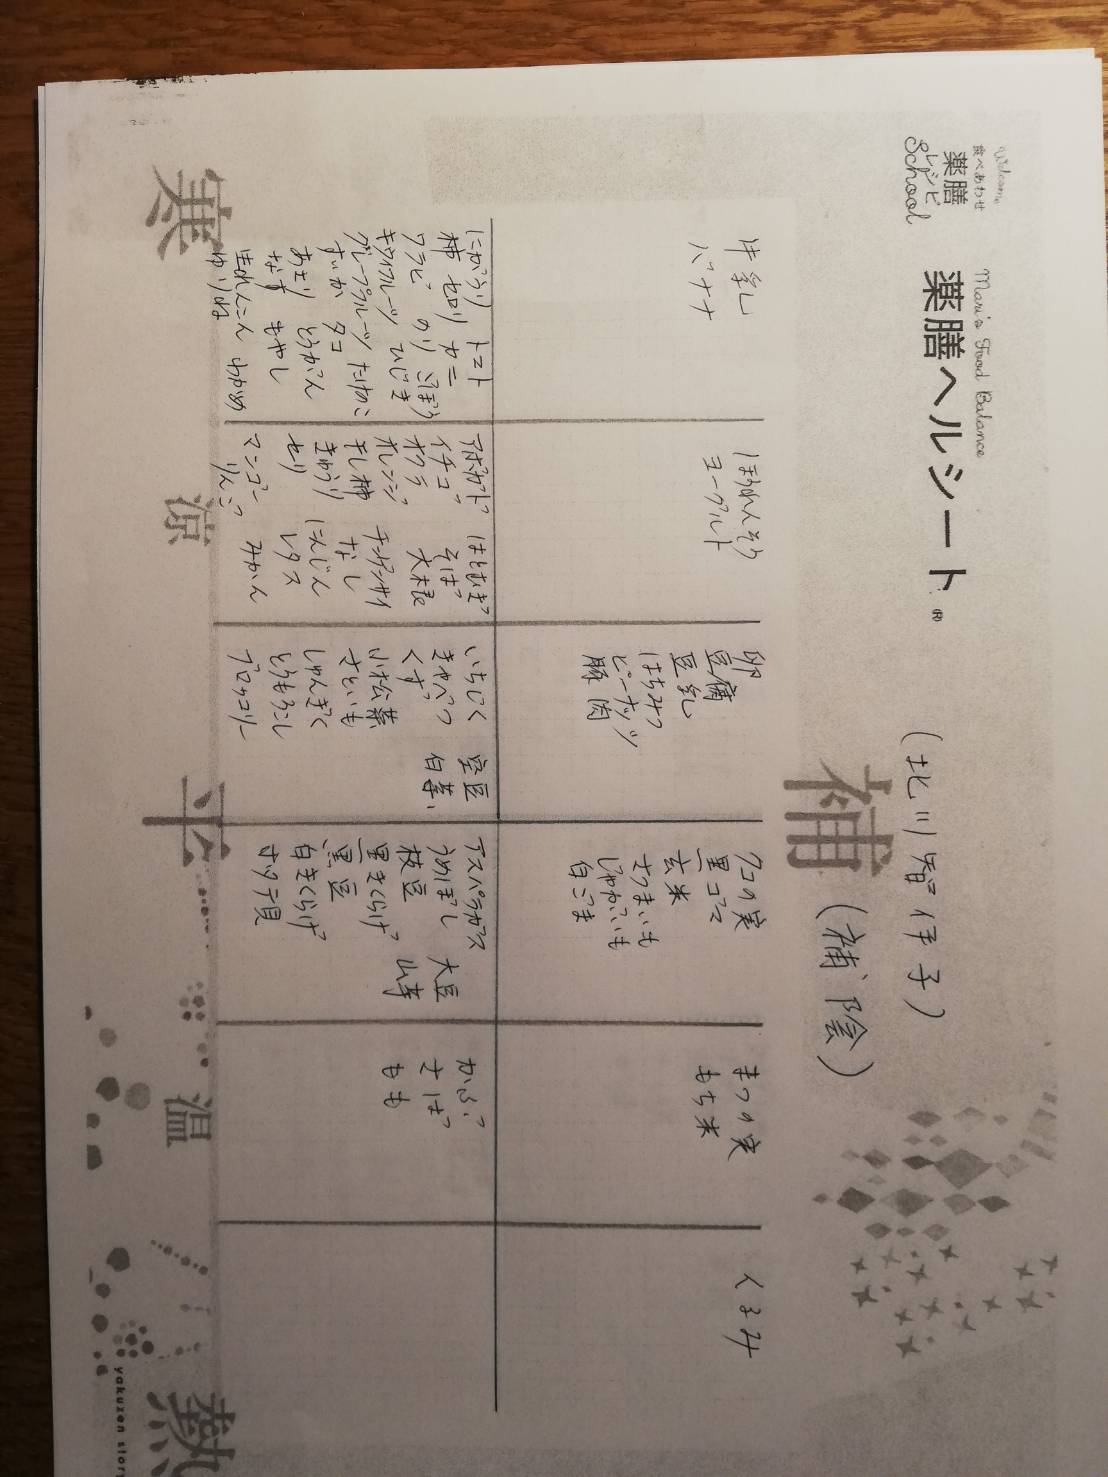 Welcome
食べあわせ
薬膳
レシピ
School
Mari's Food Balance
薬膳ヘルシート®
(北川智伊子)
補(補陰)
牛乳
バナナ
ほうれんそう
ヨーグルト
卵
豆腐
豆乳
はちみつ
ピーナッツ
豚肉
クコの実
黒ゴマ
玄米
さつまいも
じゃがいも
白ごま
まつの実
もち米
くるみ
にがうり トマト
柿 セロリ カニ
ワラビ のり ごぼう
キウイフルーツ ひじき
グレープフルーツ たけのこ
すいか タコ
あさり とうがん
なす もやし
生れんこん わかめ
ゆりね
アボガド はとむぎ
イチゴ そば
オクラ 大根
オレンジ チンゲンサイ
干し柿 なし
きゅうり にんじん
セリ レタス
マンゴー みかん
りんご
いちじく 空豆
きゃべつ 白菜
くず
小松菜
さといも
しゅんぎく
とうもろこし
ブロッコリー
アスパラガス 大豆
うめぼし 山芋
枝豆
黒きくらげ
黒豆
白きくらげ
ホタテ貝
かぶ
さば
もも
寒 涼 平 温 熱
yakuzen story